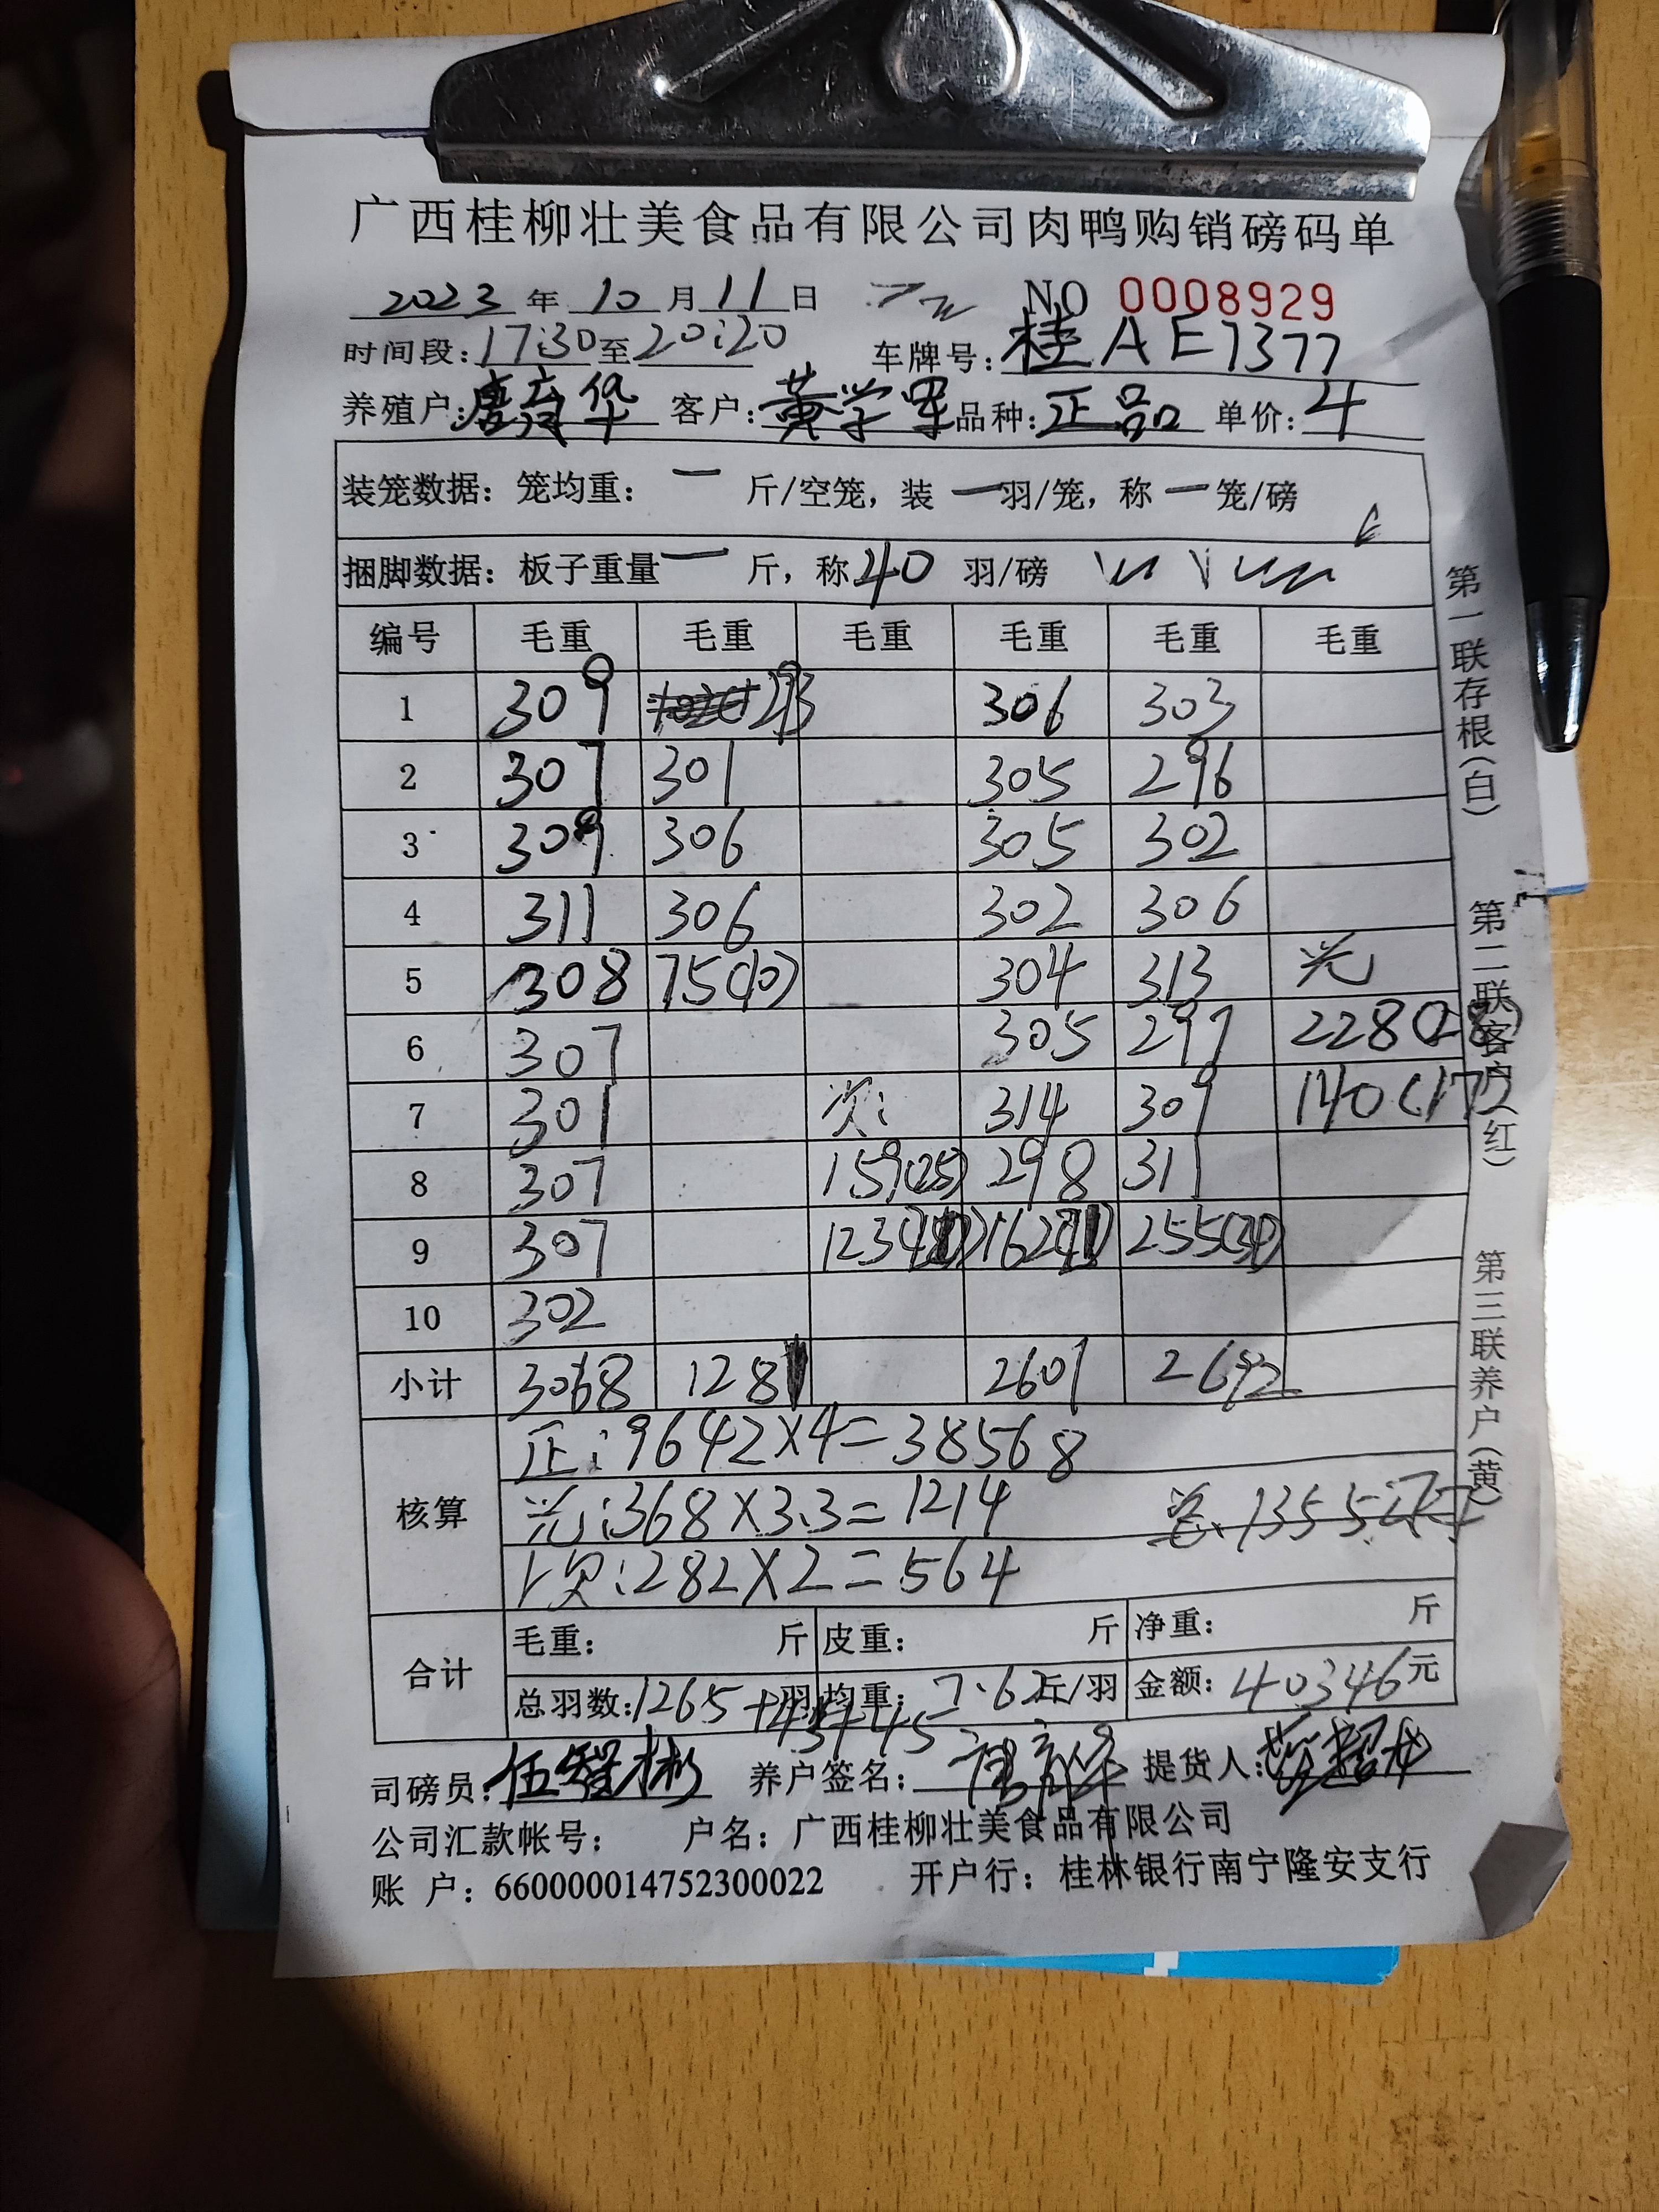 广西桂柳壮美食品有限公司肉鸭购销磅码单
2023 年 10 月 11 日 NO 0008929
时间段: 17:30 至 20:20 车牌号: 桂AE7377
养殖户: 唐 华 客户: 黄学军 品种: 正品 单价: 4
装笼数据: 笼均重: 一 斤/空笼, 装 一 羽/笼, 称 一 笼/磅
捆脚数据: 板子重量 一 斤, 称 40 羽/磅
编号 毛重 毛重 毛重 毛重 毛重 毛重
1 309 293 306 303
2 307 301 305 296
3 309 306 305 302
4 311 306 302 306
5 308 75(10) 304 313 光
6 307 305 297 228(28)
7 301 次: 314 309 140(17)
8 307 159(25) 298 311
9 307 123 162 255(34)
10 302
小计 3068 1281 2601 2692
核算
正:9642×4=38568
光:368×3.3=1214 总、1355羽
次:282×2=564
合计 毛重: 斤 皮重: 斤 净重: 斤
总羽数: 1265+45+45 羽 均重: 7.62 斤/羽 金额: 40346 元
司磅员: 伍 彬 养户签名: 提货人:
公司汇款帐号: 户名: 广西桂柳壮美食品有限公司
账 户: 660000014752300022 开户行: 桂林银行南宁隆安支行
第一联存根(白) 第二联客户(红) 第三联养户(黄)